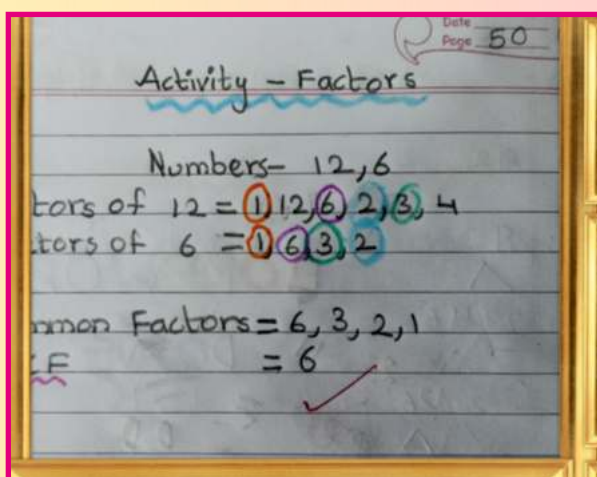 Date
Page 50
Activity - Factors
Numbers- 12,6
tors of 12 = 1,12,6,2,3,4
tors of 6 = 1,6,3,2
mmon Factors = 6, 3, 2, 1
CF = 6